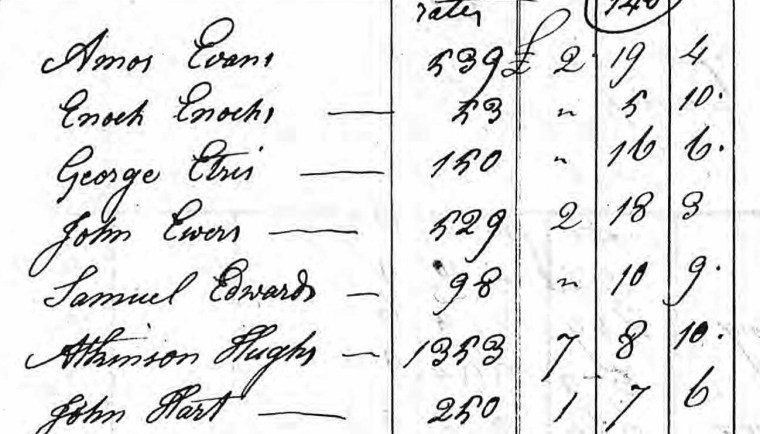 rates
Amos Evans 539 £ 2 19 4
Enoch Enochs — 53 " 5 10.
George Etris — 150 " 16 6.
John Ewers — 529 2 18 3
Samuel Edwards — 98 " 10 9.
Atkinson Hughs — 1353 7 8 10.
John Hart — 250 1 7 6